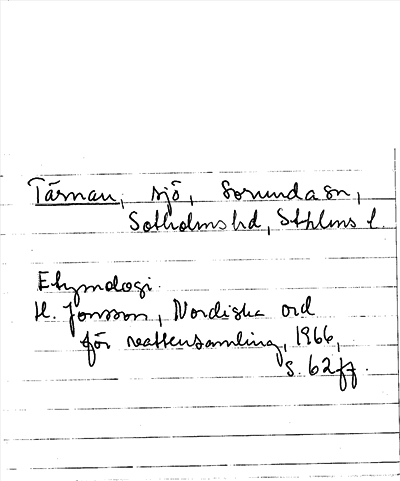 Tärnan, sjö, Sorunda sn,
Sotholms hd, Sthlms l.
Etymologi.
H. Jonsson, Nordiska ord
för vattensamling, 1966,
s. 62 ff.